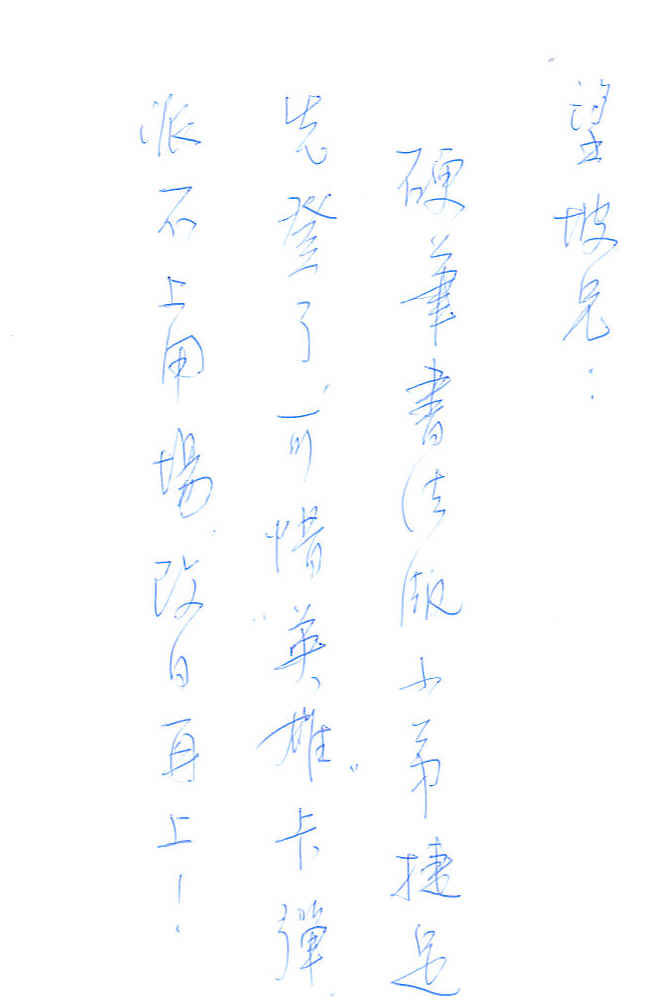 望坡兄：
硬筆書法版小弟捷足
先登了，可惜“英雄”卡彈
派不上用場改日再上！